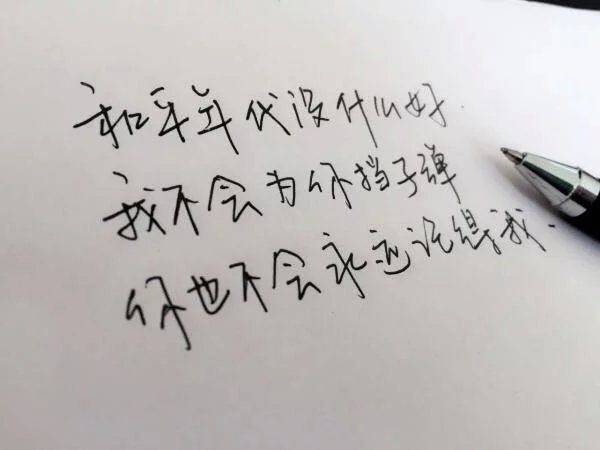 和平年代没什么好
我不会为你挡子弹
你也不会永远记得我.